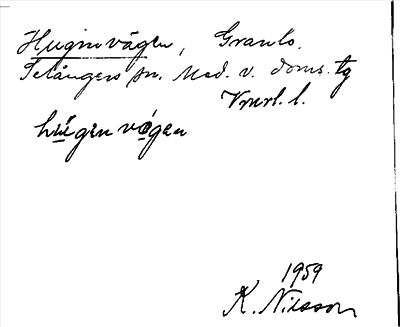 Huginvägen, Granlo.
Selångers sn. Med. v. doms. tg
Vnrl. l.
hügen vägen
1959
K. Nilsson